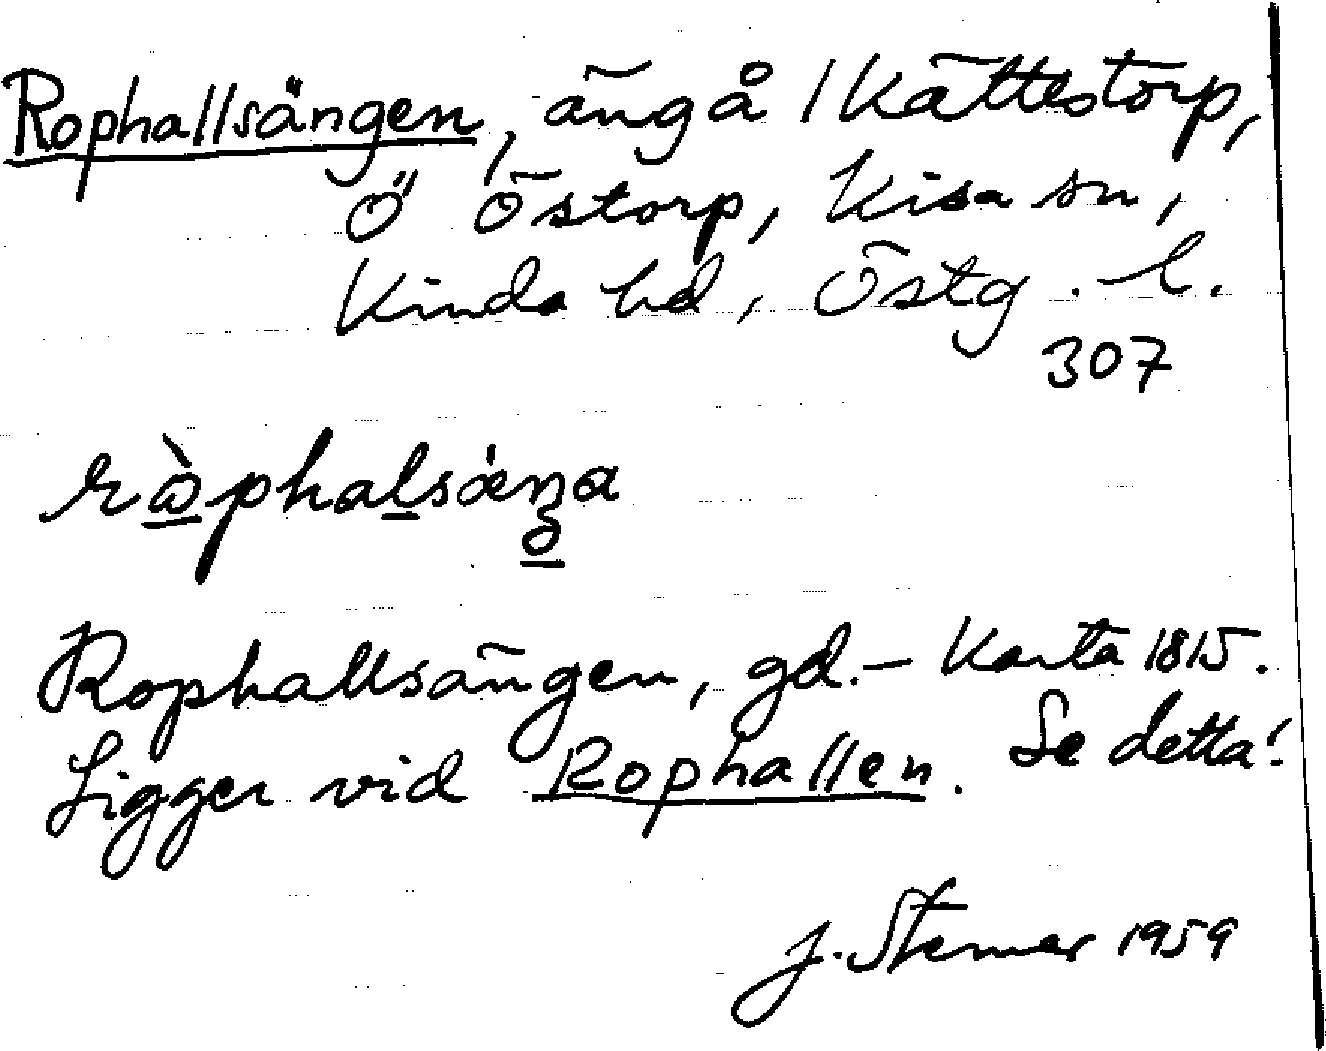 Rophallsängen, äng å 1 Kättestorp,
Ö Östorp, Kisa sn,
Kinda hd, Östg. l.
307
Rophallsängen, gd. – Karta 1815.
Ligger vid Rophallen. Se detta!
J. 1959